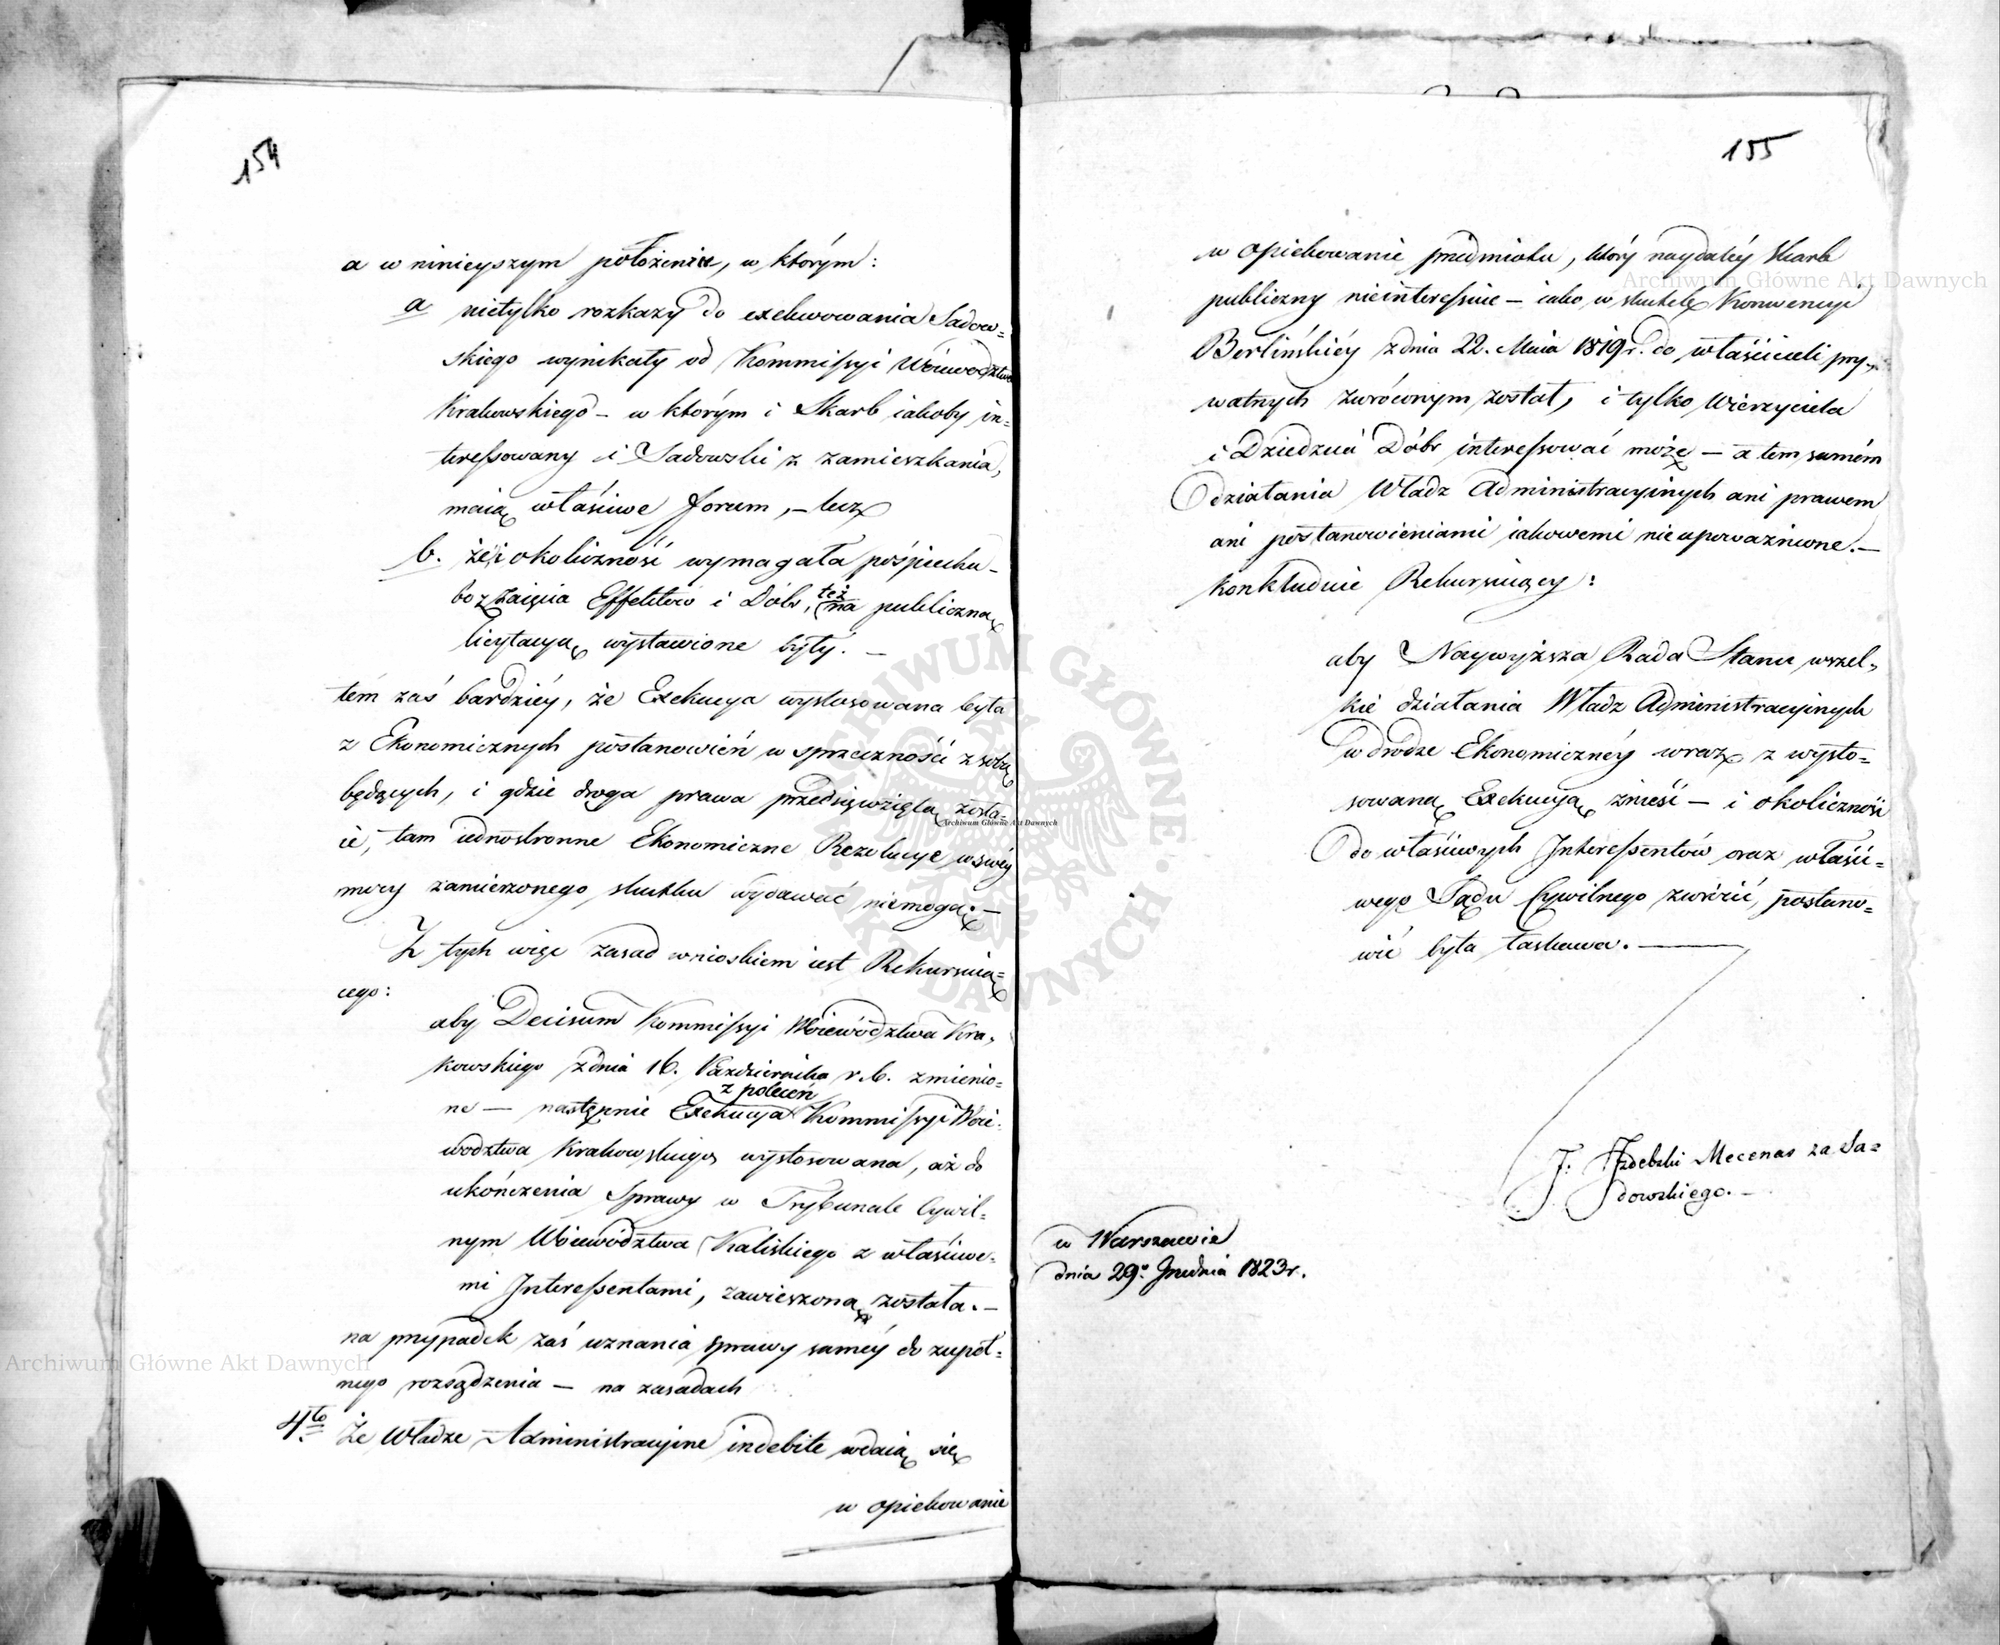 154
a w ninieyszym położeniu, w którym:
a nietylko rozkazy do exekwowania Sadow=
skiego wynikały od Kommissyi Woiewodztwa
Krakowskiego – w którym i Skarb iakoby in=
teressowany i Sadowski z zamieszkania,
maią właściwe forum, – lecz
b. że i okoliczność wymagała pośpiechu –
bo z zaięcia Effektów i Dóbr, też na publiczną
licytacyą wystawione były. –
tém zaś bardziéy, że Exekucya wystosowana była
z Ekonomicznych postanowień w sprzeczności z sobą
będących, i gdzie droga prawa przedsięwziętą zosta=
ie, tam iednostronne Ekonomiczne Rezolucye w swéy
mocy zamierzonego skutku wydawać niemogą. –
Z tych więc zasad wnioskiem iest Rekursuią=
cego:
aby Decisum Kommissyi Woiewództwa Kra,
kowskiego z dnia 16. Października r. b. zmienio=
ne – następnie Exekucya z poleceń Kommissyi Woie=
wodztwa Krakowskiego wystosowana, aż do
ukończenia Sprawy w Trybunale Cywil=
nym Woiewództwa Kaliskiego z właściwe=
mi Interessentami, zawieszoną została. –
na przypadek zaś uznania sprawy saméy do zupeł=
nego rozsądzenia – na zasadach
4to Że Władze Administracyine indebite wdaią się
w opiekowanie
155
w opiekowanie przedmiotu, który naydaléy Skarb
publiczny nieinteressuie – iako w skutek Konwencyi
Berlińskiéy z dnia 22. Maia 1819 r. do właścicieli pry=
watnych zwróconym został, i tylko Wierzyciela
i Dziedzica Dóbr interessować może – a tem samém
działania Władz Administracyinych ani prawem
ani postanowieniami iakowemi nieupoważnione. –
konkluduie Rekursuiący:
aby Naywyższa Rada Stanu wszel,
kie działania Władz Administracyinych
w drodze Ekonomicznéy wraz z wysto=
sowaną Exekucyą znieść – i okoliczność
do właściwych Interessentów oraz właści=
wego Sądu Cywilnego zwrócić, postano=
wić była łaskawa. –
J. Mecenas za Sa=
dowskiego. –
w Warszawie
dnia 29o Grudnia 1823 r.
Archiwum Główne Akt Dawnych
Archiwum Główne Akt Dawnych
Archiwum Główne Akt Dawnych
ARCHIWUM GŁÓWNE · AKT DAWNYCH ·